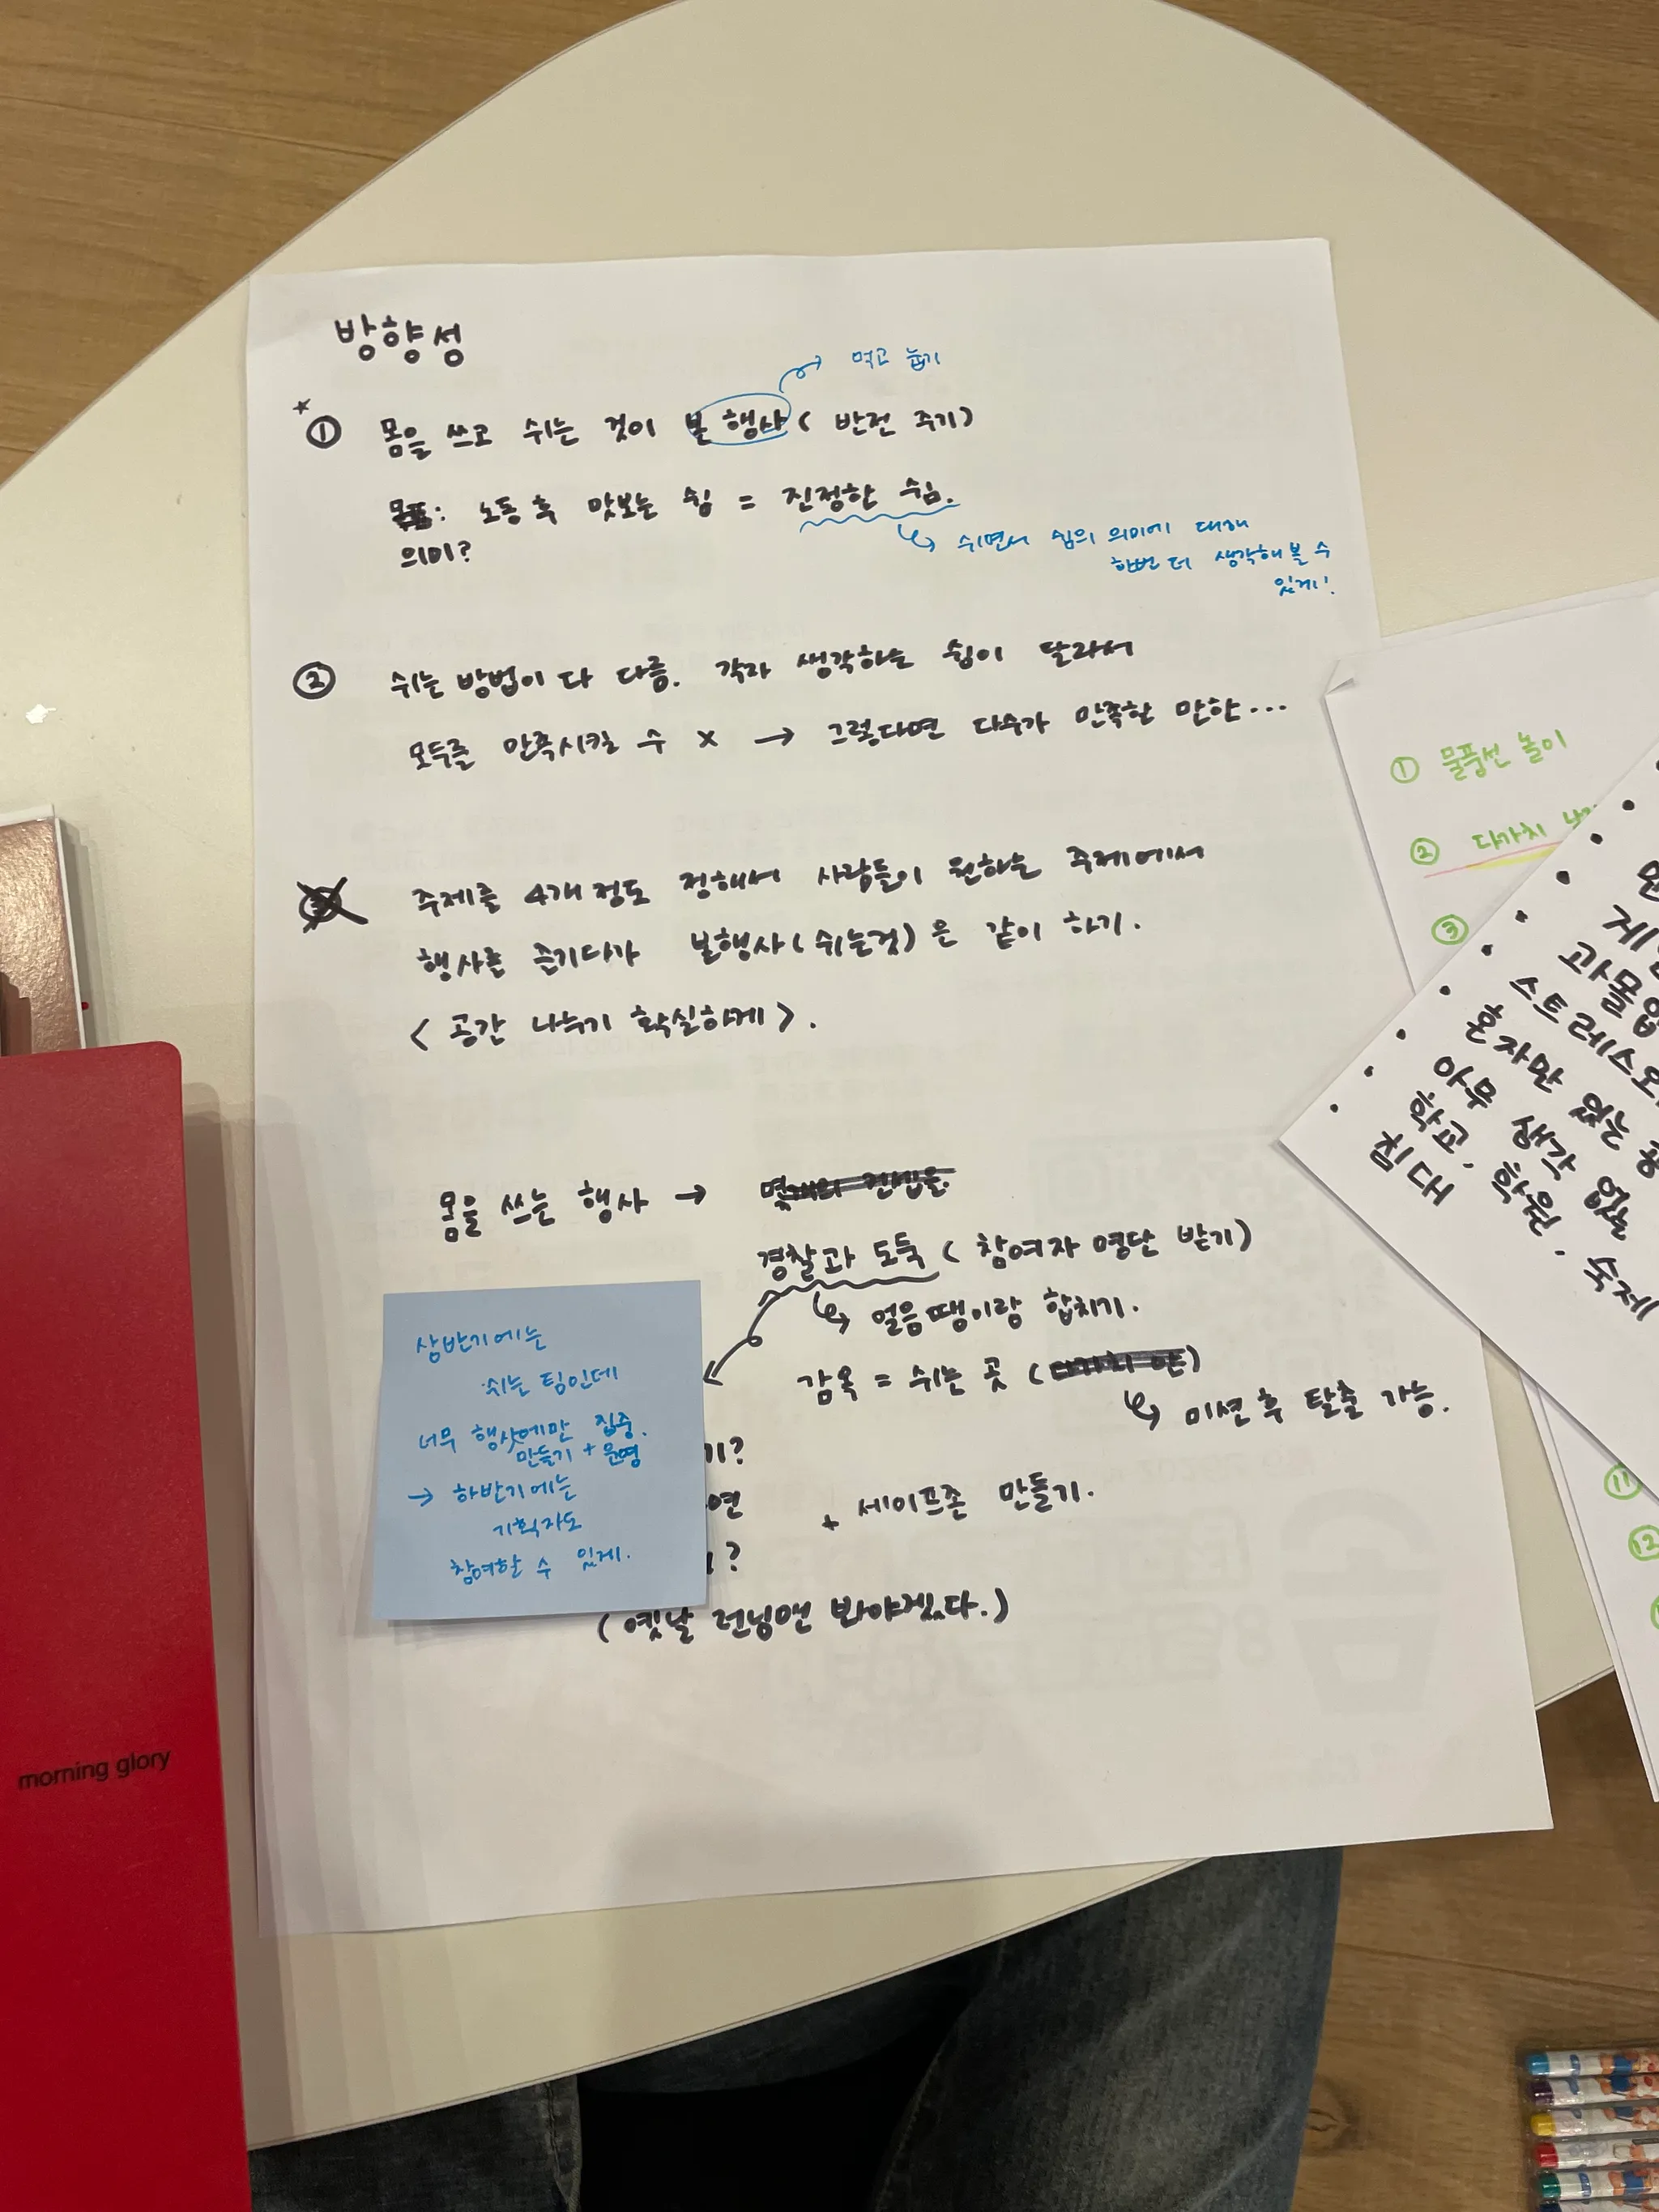 방향성
→ 먹고 눕기
★ ① 몸을 쓰고 쉬는 것이 본 행사 ( 반전 주기)
: 노동 후 맛보는 쉼 = 진정한 쉼.
의미?
↳ 쉬면서 쉼의 의미에 대해
한번 더 생각해 볼 수
있게!
② 쉬는 방법이 다 다름. 각자 생각하는 쉼이 달라서
모두를 만족시킬 수 x → 그렇다면 다수가 만족할 만한...
주제를 4개 정도 정해서 사람들이 원하는 주제에서
행사를 즐기다가 본행사(쉬는것)은 같이 하기.
< 공간 나누기 확실하게 > .
몸을 쓰는 행사 →
경찰과 도둑 ( 참여자 명단 받기)
↳ 얼음땡이랑 합치기.
감옥 = 쉬는 곳 ( )
↳ 미션 후 탈출 가능.
기?
면
+ 세이프존 만들기.
?
(옛날 런닝맨 봐야겠다.)
상반기에는
쉬는 팀인데
너무 행사에만 집중.
만들기 + 운영
→ 하반기에는
기획자도
참여할 수 있게.
① 물풍선 놀이
② 다가치
③
과몰입
스트레스
혼자만 있는
아무 생각 없는
학교, 학원, 숙제
침대
⑪
⑫
morning glory